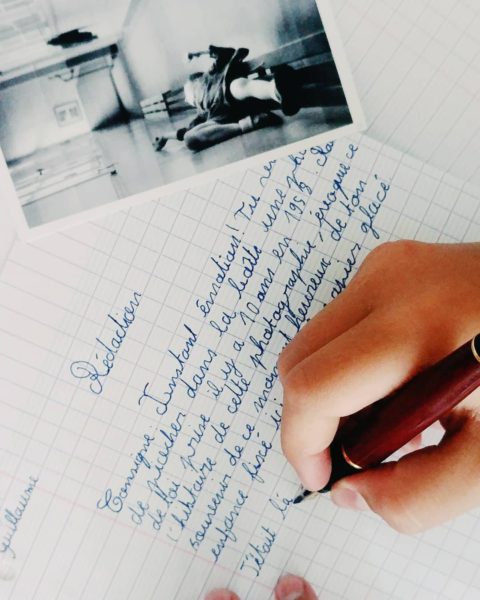 Guillaume
Rédaction
Consigne: Instant émotion! Tu
de piocher dans la boîte une
de toi prise il y a 10 ans en 1959. Ra
l'histoire de cette photographie, évoque ce
souvenir de ce heureux de ton
enfance fixé papier glacé
J'était li